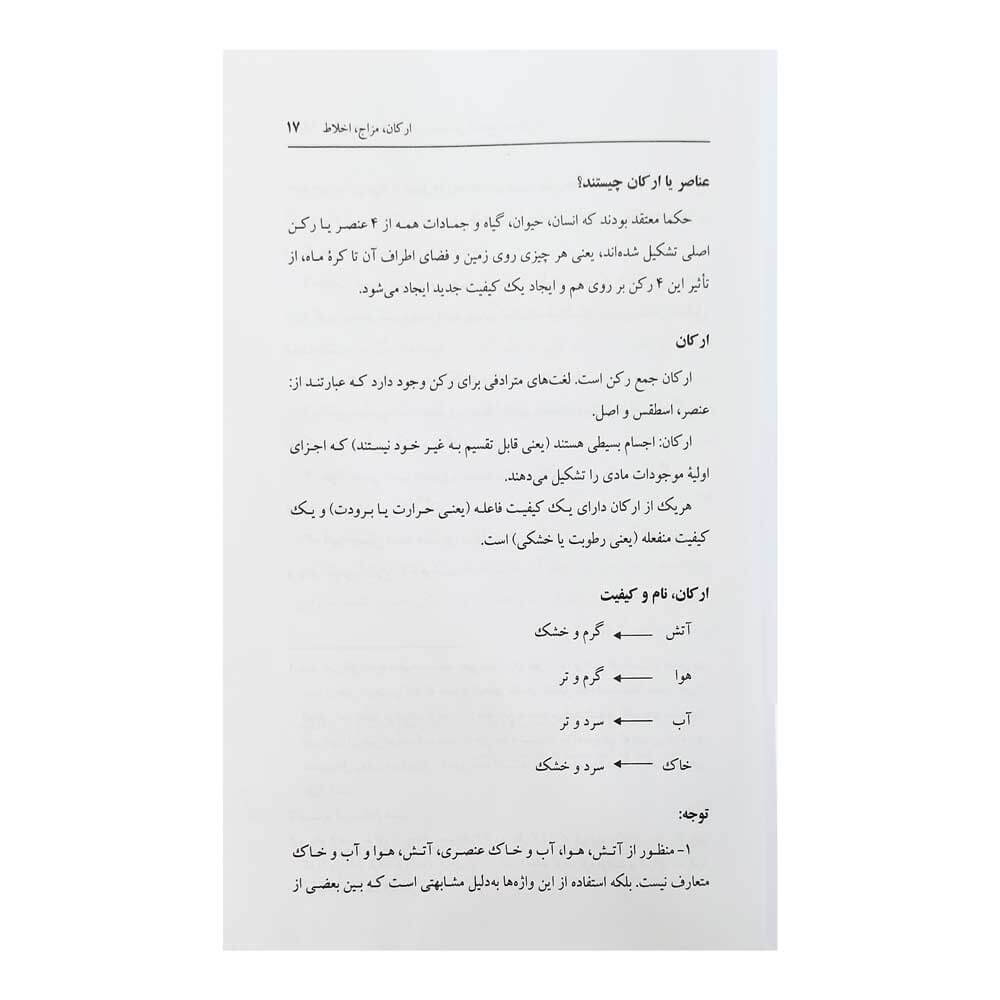 ارکان، مزاج، اخلاط ۱۷
عناصر یا ارکان چیستند؟
حکما معتقد بودند که انسان، حیوان، گیاه و جمادات همه از ۴ عنصر یا رکن
اصلی تشکیل شده‌اند، یعنی هر چیزی روی زمین و فضای اطراف آن تا کرهٔ ماه، از
تأثیر این ۴ رکن بر روی هم و ایجاد یک کیفیت جدید ایجاد می‌شود.
ارکان
ارکان جمع رکن است. لغت‌های مترادفی برای رکن وجود دارد که عبارتند از:
عنصر، اسطقس و اصل.
ارکان: اجسام بسیطی هستند (یعنی قابل تقسیم به غیر خود نیستند) که اجزای
اولیهٔ موجودات مادی را تشکیل می‌دهند.
هریک از ارکان دارای یک کیفیت فاعله (یعنی حرارت یا برودت) و یک
کیفیت منفعله (یعنی رطوبت یا خشکی) است.
ارکان، نام و کیفیت
آتش ← گرم و خشک
هوا ← گرم و تر
آب ← سرد و تر
خاک ← سرد و خشک
توجه:
۱- منظور از آتش، هوا، آب و خاک عنصری، آتش، هوا و آب و خاک
متعارف نیست. بلکه استفاده از این واژه‌ها به‌دلیل مشابهتی است که بین بعضی از